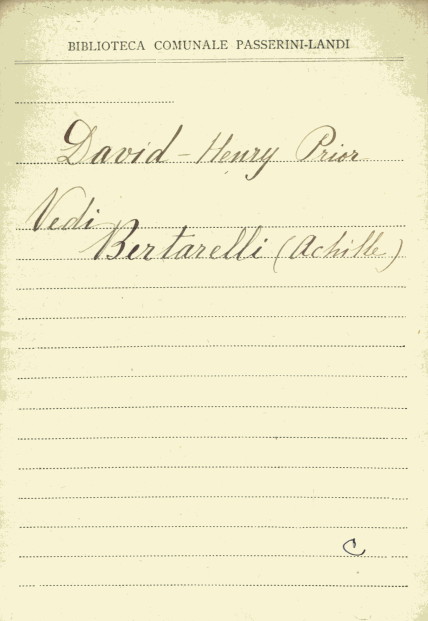 BIBLIOTECA COMUNALE PASSERINI-LANDI
David - Henry Prior
Vedi
Bertarelli (Achille)
C